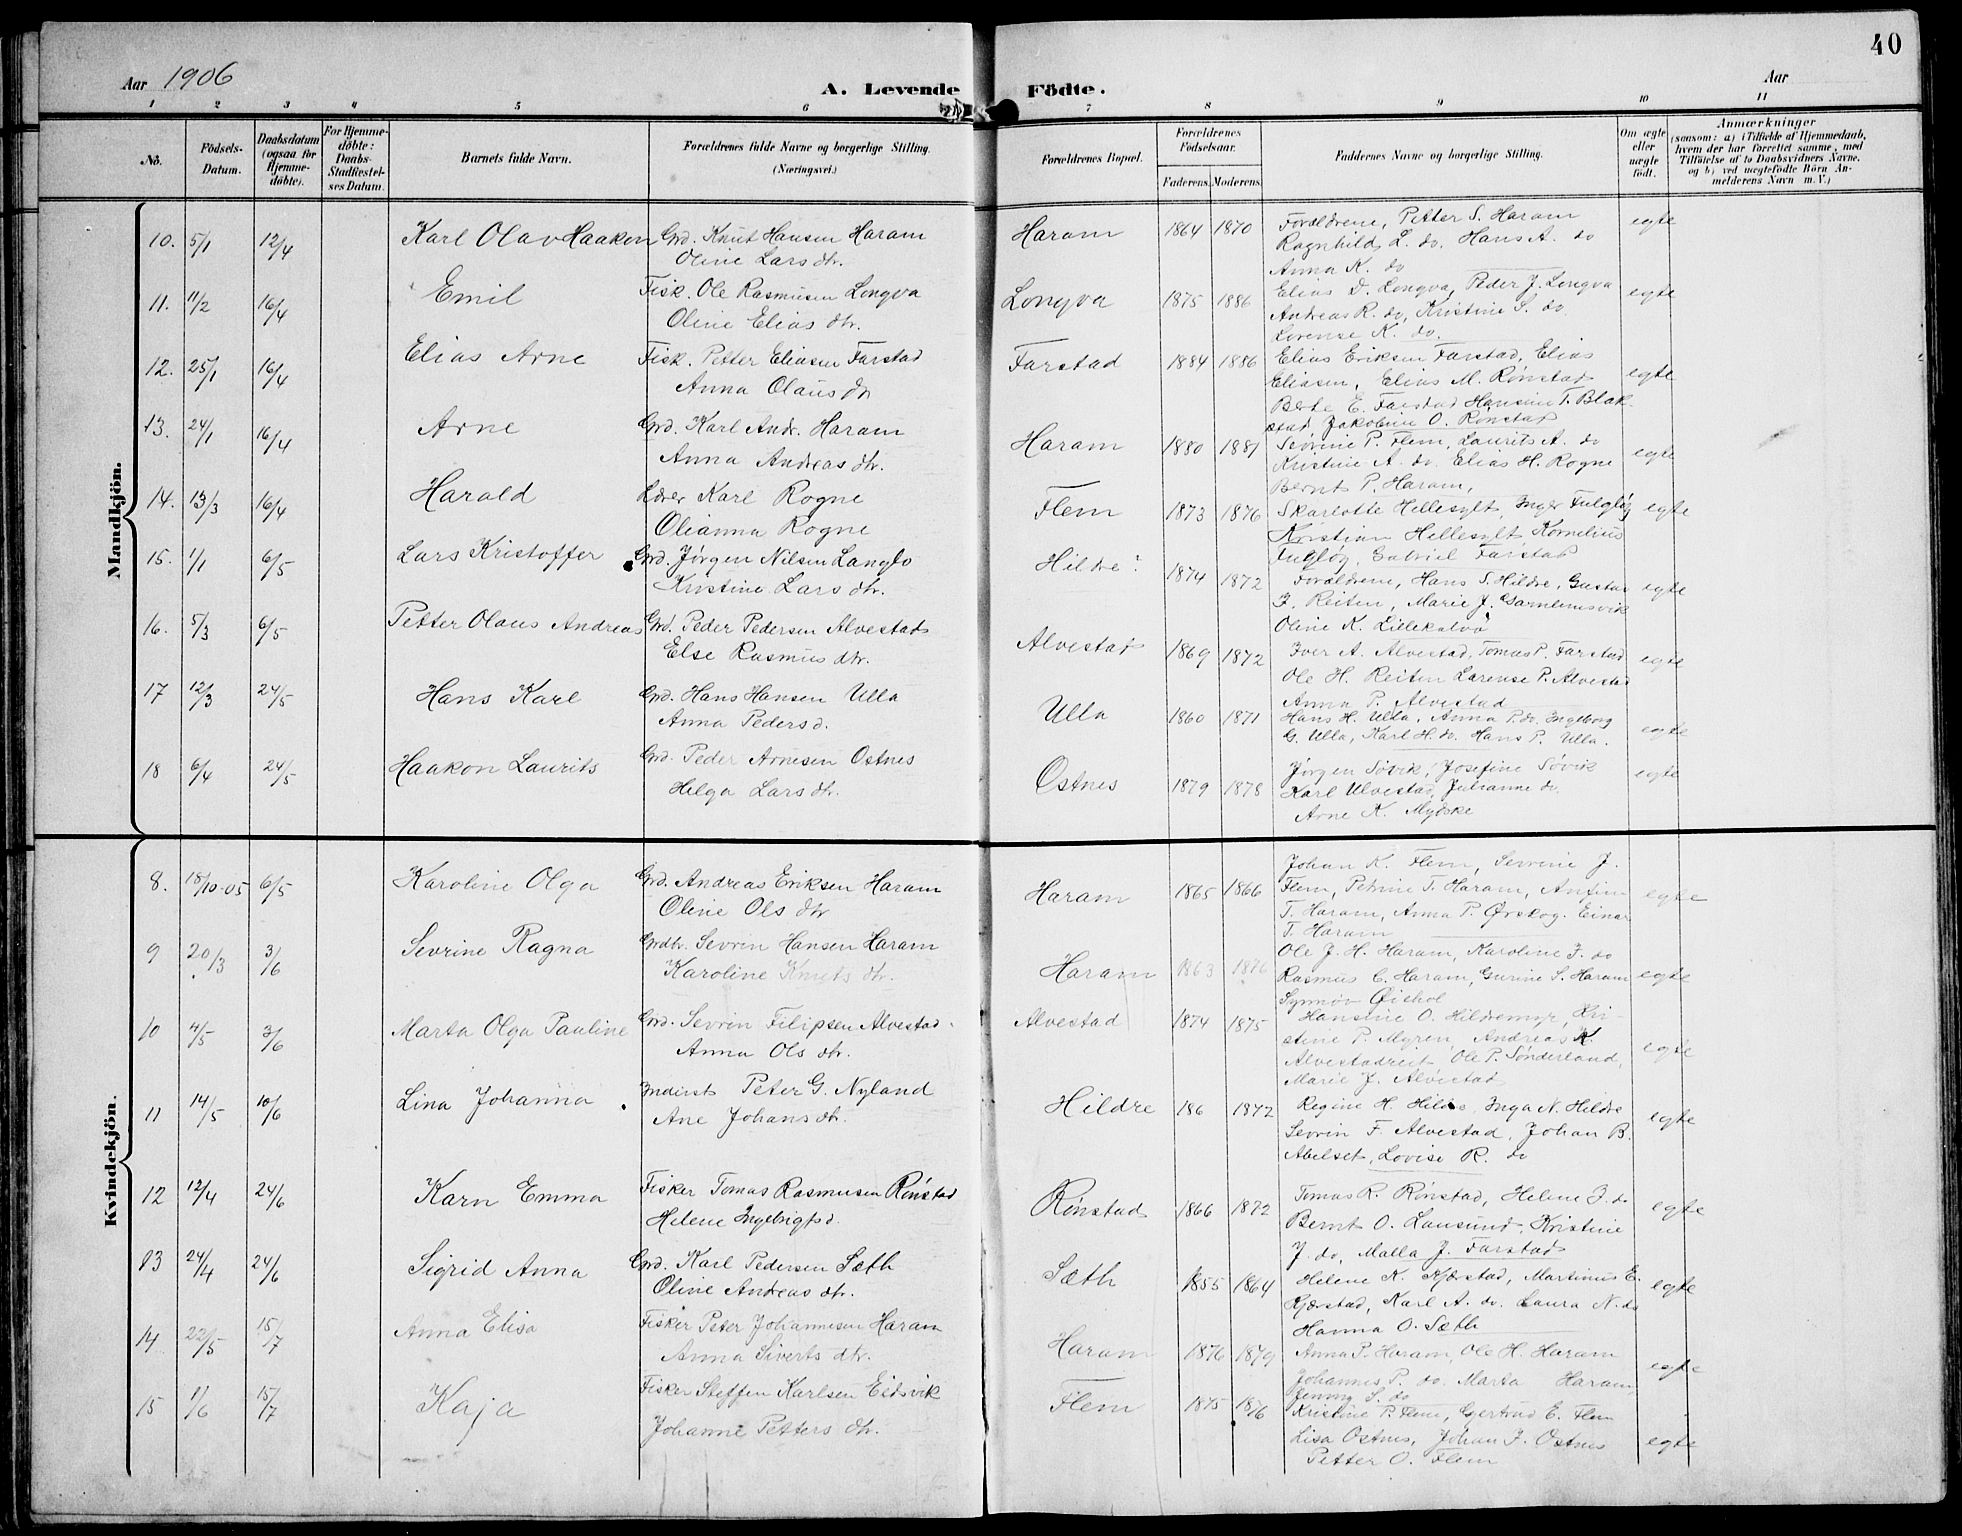 40
Aar 1906
A. Levende Födte.
Aar
1 2 3 4 5 6 7 8 9 10 11
No.
Födsels-Datum.
Daabsdatum (ogsaa for Hjemme-döbte).
For Hjemme-döbte: Daabs-Stadfestel-ses Datum.
Barnets fulde Navn.
Forældrenes fulde Navne og borgerlige Stilling. (Næringsvei.)
Forældrenes Bopæl.
Forældrenes Födselsaar.
Faderens. Moderens.
Faddernes Navne og borgerlige Stilling.
Om ægte eller uægte födt.
Anmærkninger
(saasom: a) (Tilfælde af Hjemmedaab,
hvem der har forrettet samme, med
Tilföielse af to Daabsvidners Navne,
og b) ved uægtefödte Börn An-
melderens Navn m. V.)
Mandkjön.
10. 5/1 12/4 Karl Olav Haakon Grd. Knut Hansen Haram Haram 1864 1870 Forældrene, Petter S. Haram egte
Oline Lars dtr. Ragnhild L. do. Hans A. do
Anna K. do
11. 11/2 16/4 Emil Fisk. Ole Rasmusen Longva Longva 1875 1886 Elias D. Longva, Peder J. Longva egte
Oline Elias dtr. Andreas R. do, Kristine S. do
Lorense K. do.
12. 25/1 16/4 Elias Arne Fisk. Petter Eliasen Farstad Farstad 1884 1886 Elias Eriksen Farstad, Elias egte
Anna Olaus dr Eliasen, Elias M. Rønstad
Berte E. Farstad Hansine T. Blak-
stad Jakobine O. Rønstad
13. 24/1 16/4 Arne Grd. Karl Andr. Haram Haram 1880 1881 Sevrine P. Flem, Laurits A. do egte
Anna Andreas dtr. Kristine A. do. Elias H. Rogne
Bernt P. Haram,
14. 13/3 16/4 Harald Lærer Karl Rogne Flem 1873 1876 Skarlotte Hellesylt, Inger Fulgløy egte
Olianna Rogne Kristian Hellesylt, Kornelius
Fulgløy, Gabriel Farstad
15. 1/1 6/5 Lars Kristoffer Grd. Jørgen Nilsen Langlo Hildre 1874 1872 Forældrene, Hans S. Hildre, Gustav egte
Kristine Lars dtr. J. Reiten, Marie J. Gamlemsvik
Oline K. Lillekalvø
16. 5/3 6/5 Petter Olaus Andreas Grd. Peder Pedersen Alvestad Alvestad 1869 1872 Iver A. Alvestad, Tomas P. Farstad egte
Else Rasmus dtr. Ole H. Reiten Larense P. Alvestad
Anna P. Alvestad
17 12/3 24/5 Hans Karl Grd. Hans Hansen Ulla Ulla 1860 1871 Hans H. Ulla, Anna P. do. Ingeborg egte
Anna Peders d. G. Ulla, Karl H. do. Hans P. Ulla.
18 6/4 24/5 Haakon Laurits Grd. Peder Arnesen Ostnes Ostnes 1879 1878 Jørgen Søvik, Josefine Søvik egte
Helga Lars dtr. Karl Ulvestad, Julianne do.
Arne K. Myrske
Kvindekjön.
8. 18/10-05 6/5 Karoline Olga Grd. Andreas Eriksen Haram Haram 1865 1866 Johan K. Flem, Sevrine J. egte
Oline Ols dtr Flem, Petrine T. Haram, Anfinn
T. Haram, Anna P. Ørskog. Einar
T. Haram
9 20/3 3/6 Sevrine Ragna Grdbr. Sevrin Hansen Haram Haram 1863 1876 Ole J. H. Haram, Karoline J. do egte
Karoline Knuts dtr. Rasmus C. Haram, Gurine S. Haram
Synnøv
10 4/5 3/6 Marta Olga Pauline Grd. Sevrin Filipsen Alvestad Alvestad 1874 1875 Hansine O. Hildremyr, Kri- egte
Anna Ols dtr. stine P. Myren, Andreas K.
Alvestadreit Ole P. Sønderland,
Marie J. Alvestad
11 14/5 10/6 Lina Johanna Inderst Peter G. Nyland Hildre 186 1872 Regine H. Hildre, Inga N. Hildre egte
Ane Johans dtr. Sevrin F. Alvestad, Johan B.
Abelset, Lovise R. do
12 12/4 24/6 Karn Emma Fisker Tomas Rasmusen Rønstad Rønstad 1866 1872 Tomas R. Rønstad, Helene J. do egte
Helene Ingebrigts d. Bernt O. Lausund, Kristine
J. do, Malla J. Farstad
13 24/4 24/6 Sigrid Anna Grd. Karl Pedersen Sæth Sæth 1855 1864 Helene K. Kjærstad, Martinus E. egte
Oline Andreas dtr. Kjærstad, Karl A. do. Laura N. do
Hanna O. Sæth
14 22/5 15/7 Anna Elisa Fisker Peter Johannesen Haram Haram 1876 1879 Anna P. Haram, Ole H. Haram egte
Anna Siverts dtr. Johannes P. do. Marta Haram,
Jenny S. do
15 1/6 15/7 Kaja Fisker Steffen Karlsen Eidsvik Flem 1875 1876 Kristine P. Flem, Gjertrud E. Flem egte
Johanne Petters dtr. Lisa Ostnes, Johan J. Ostnes
Petter O. Flem